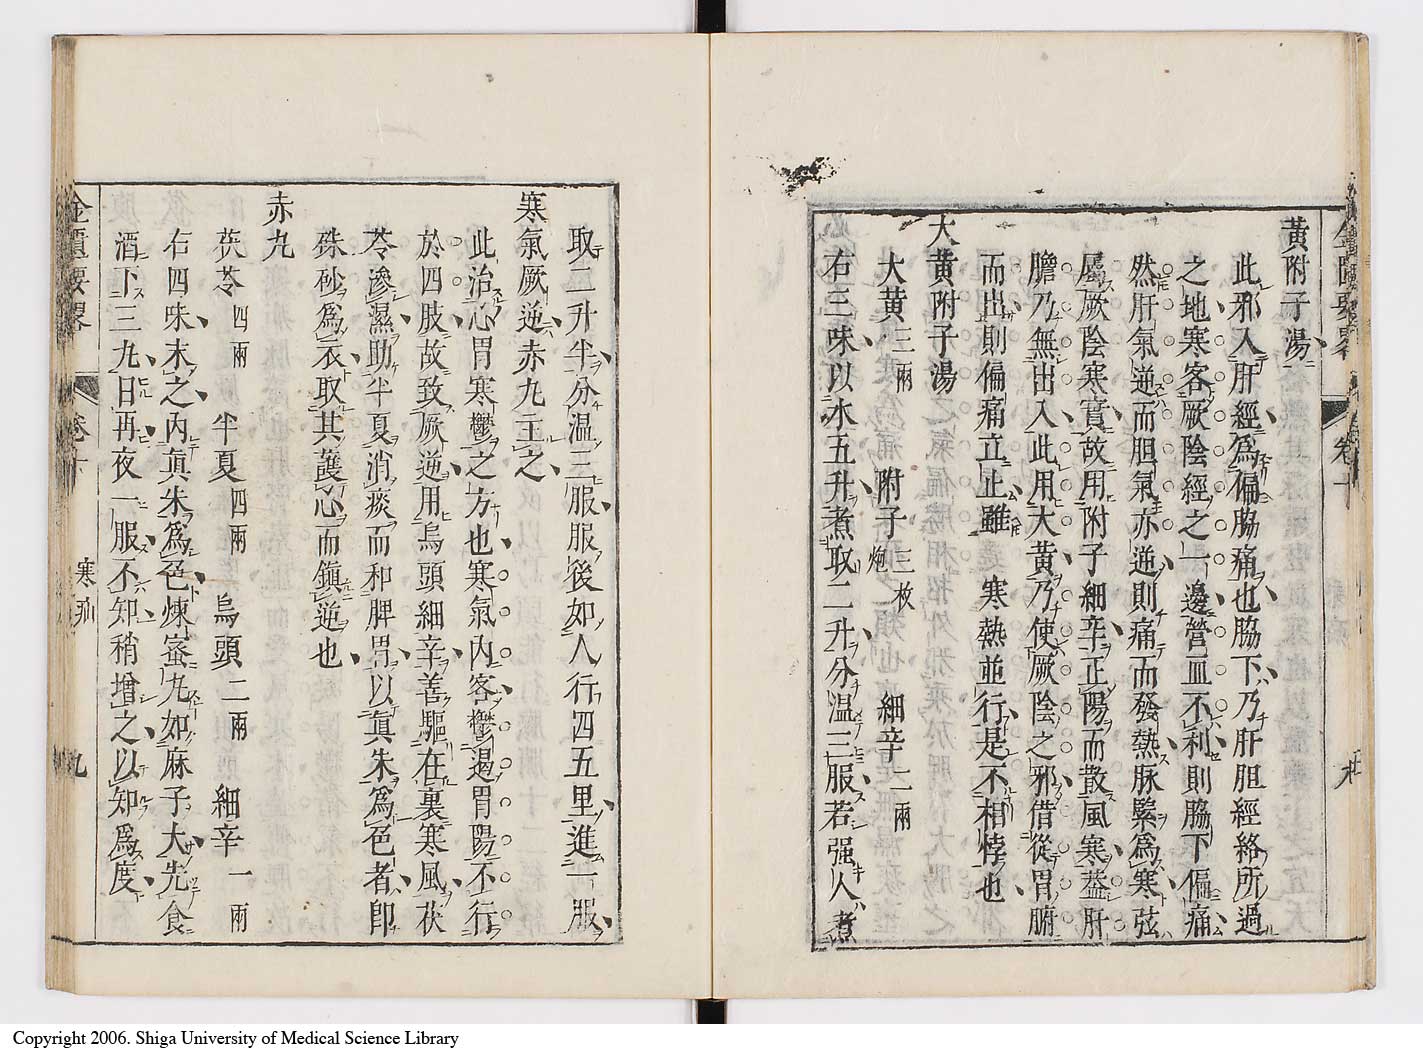 黃附子湯
此邪入肝經爲偏脇痛也脇下乃肝胆經絡所過
之地寒客厥陰經之一邊營血不利則脇下偏痛
然肝氣逆而胆氣亦逆則痛而發熱脉緊爲寒弦
屬厥陰寒實故用附子細辛正陽而散風寒葢肝
膽乃無出入此用大黃乃使厥陰之邪借從胃腑
而出則偏痛立止雖 寒熱並行是不相悖也
大黃附子湯
大黃三兩 附子三枚炮 細辛二兩
右三味以水五升煮取二升分温三服若强人煮
取二升半分温三服服後如人行四五里進一服
寒氣厥逆赤丸主之
此治心胃寒鬱之方也寒氣内客鬱遏胃陽不行
於四肢故致厥逆用烏頭細辛善驅在裏寒風茯
苓滲濕助半夏消痰而和脾胃以眞朱爲色者卽
硃砂爲衣取其護心而鎭逆也
赤丸
茯苓四兩 半夏四兩 烏頭二兩 細辛一兩
右四味末之内眞朱爲色煉蜜丸如麻子大先食
酒下三丸日再夜一服不知稍增之以知爲度
金匱要畧 卷十 寒疝 九
Copyright 2006. Shiga University of Medical Science Library